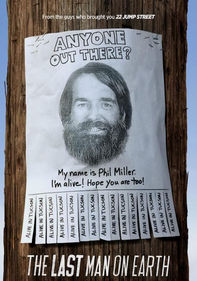 From the guys who brought you 22 JUMP STREET
ANYONE
OUT THERE?
My name is Phil Miller.
I'm alive! Hope you are too!
ALIVE IN TUCSON
ALIVE IN TUCSON
ALIVE IN TUCSON
ALIVE IN TUCSON
ALIVE IN TUCSON
ALIVE IN TUCSON
ALIVE IN TUCSON
ALIVE IN TUCSON
ALIVE IN TUCSON
ALIVE IN TUCSON
ALIVE IN TUCSON
ALIVE IN TUCSON
THE LAST MAN ON EARTH